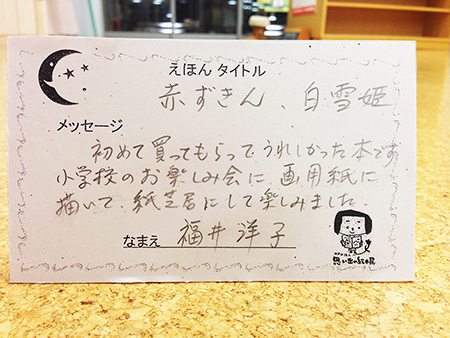 えほん タイトル
赤ずきん、白雪姫
メッセージ
初めて買ってもらって、うれしかった本です
小学校のお楽しみ会に、画用紙に
描いて、紙芝居にして楽しみました.
なまえ 福井洋子
思い出の絵本展